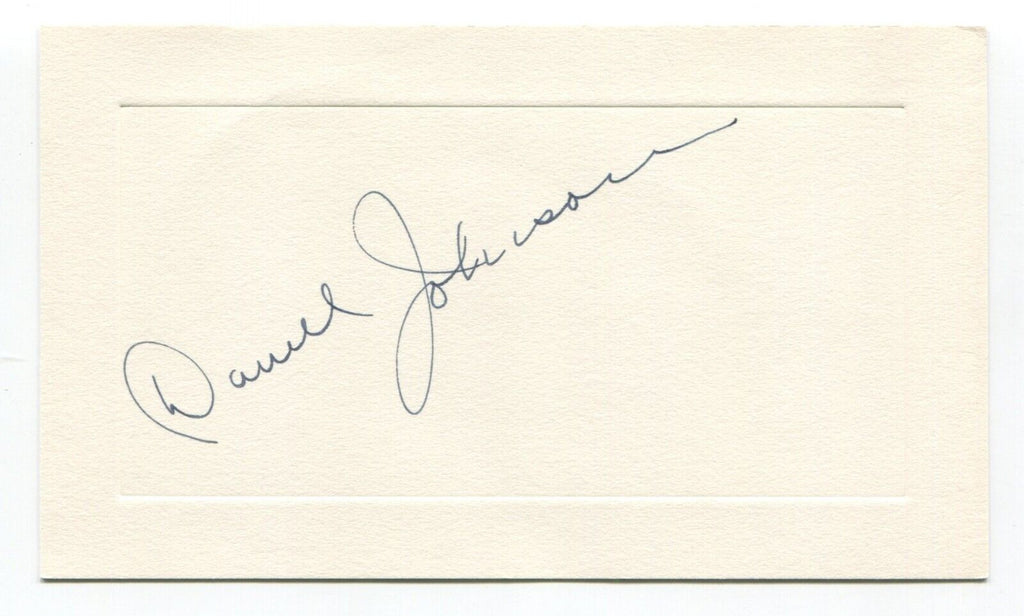 Darrell Johnson